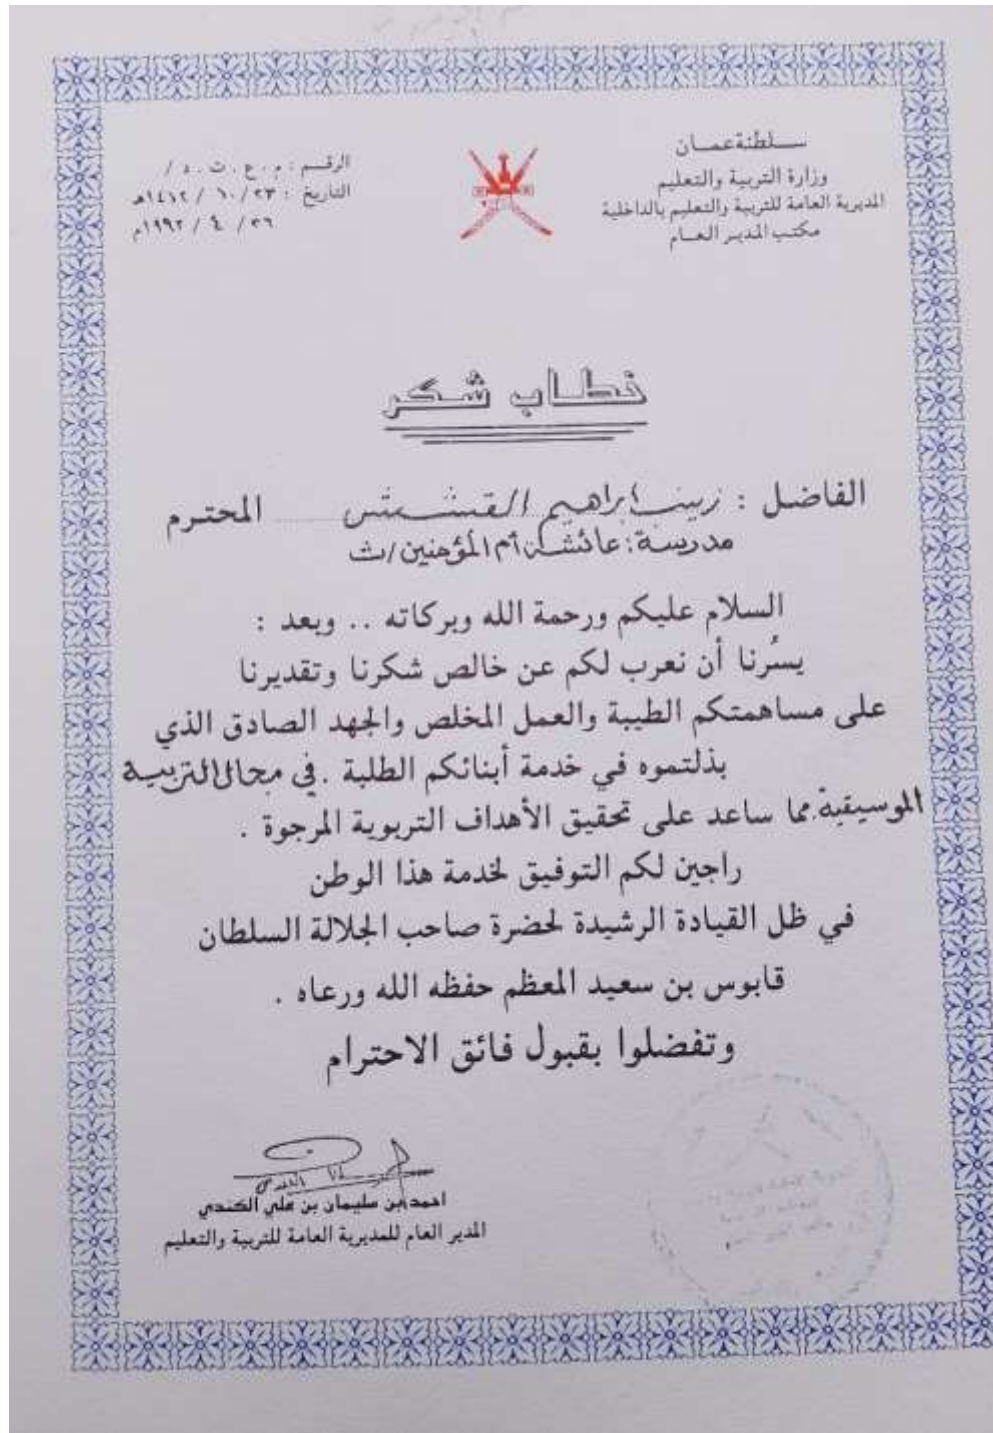 سلطنة عمان
وزارة التربية والتعليم
المديرية العامة للتربية والتعليم بالداخلية
مكتب المدير العام
الرقم : م . ع . ت . د /
التاريخ : ٢٣ / ١٠ / ١٤١٢هـ
٢٦ / ٤ / ١٩٩٢م
خطاب شكر
الفاضل : زينب ابراهيم المحترم
مدرسة : عائشة أم المؤمنين / ث
السلام عليكم ورحمة الله وبركاته .. وبعد :
يسُرنا أن نعرب لكم عن خالص شكرنا وتقديرنا
على مساهمتكم الطيبة والعمل المخلص والجهد الصادق الذي
بذلتموه في خدمة أبنائكم الطلبة . في مجال التربية
الموسيقية . مما ساعد على تحقيق الأهداف التربوية المرجوة .
راجين لكم التوفيق لخدمة هذا الوطن
في ظل القيادة الرشيدة لحضرة صاحب الجلالة السلطان
قابوس بن سعيد المعظم حفظه الله ورعاه .
وتفضلوا بقبول فائق الاحترام
احمد بن سليمان بن علي الكندي
المدير العام للمديرية العامة للتربية والتعليم